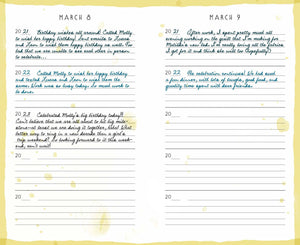 MARCH 8
20 21 Birthday wishes all around. Called Molly
to wish her happy birthday. Sent emails to Luara
and Leon to wish them happy birthday as well. For
that we are unable to see each other in person
to celebrate...
20 22 Called Molly to wish her happy birthday
and texted Luara and Leon to wish them the
same. Work was so busy today. So much work to
be done.
20 23 Celebrated Molly's big birthday today!!
Can't believe that we are all about to hit big mile-
stones-at least we are doing it together, haha! What
better way to ring in a new decade than a girl's
trip weekend! So looking forward to it this week-
end, can't wait!
20
20
MARCH 9
20 21 After work, I spent pretty much all
evening working on the quilt that I'm making for
Matilda's new bed. I'm really loving all the fabrics
I got for it and think she will too (hopefully!)
20 22 The celebration continues! We had such
a fun dinner, with lots of laughs, good food, and
quality time spent with dear friends.
20
20
20